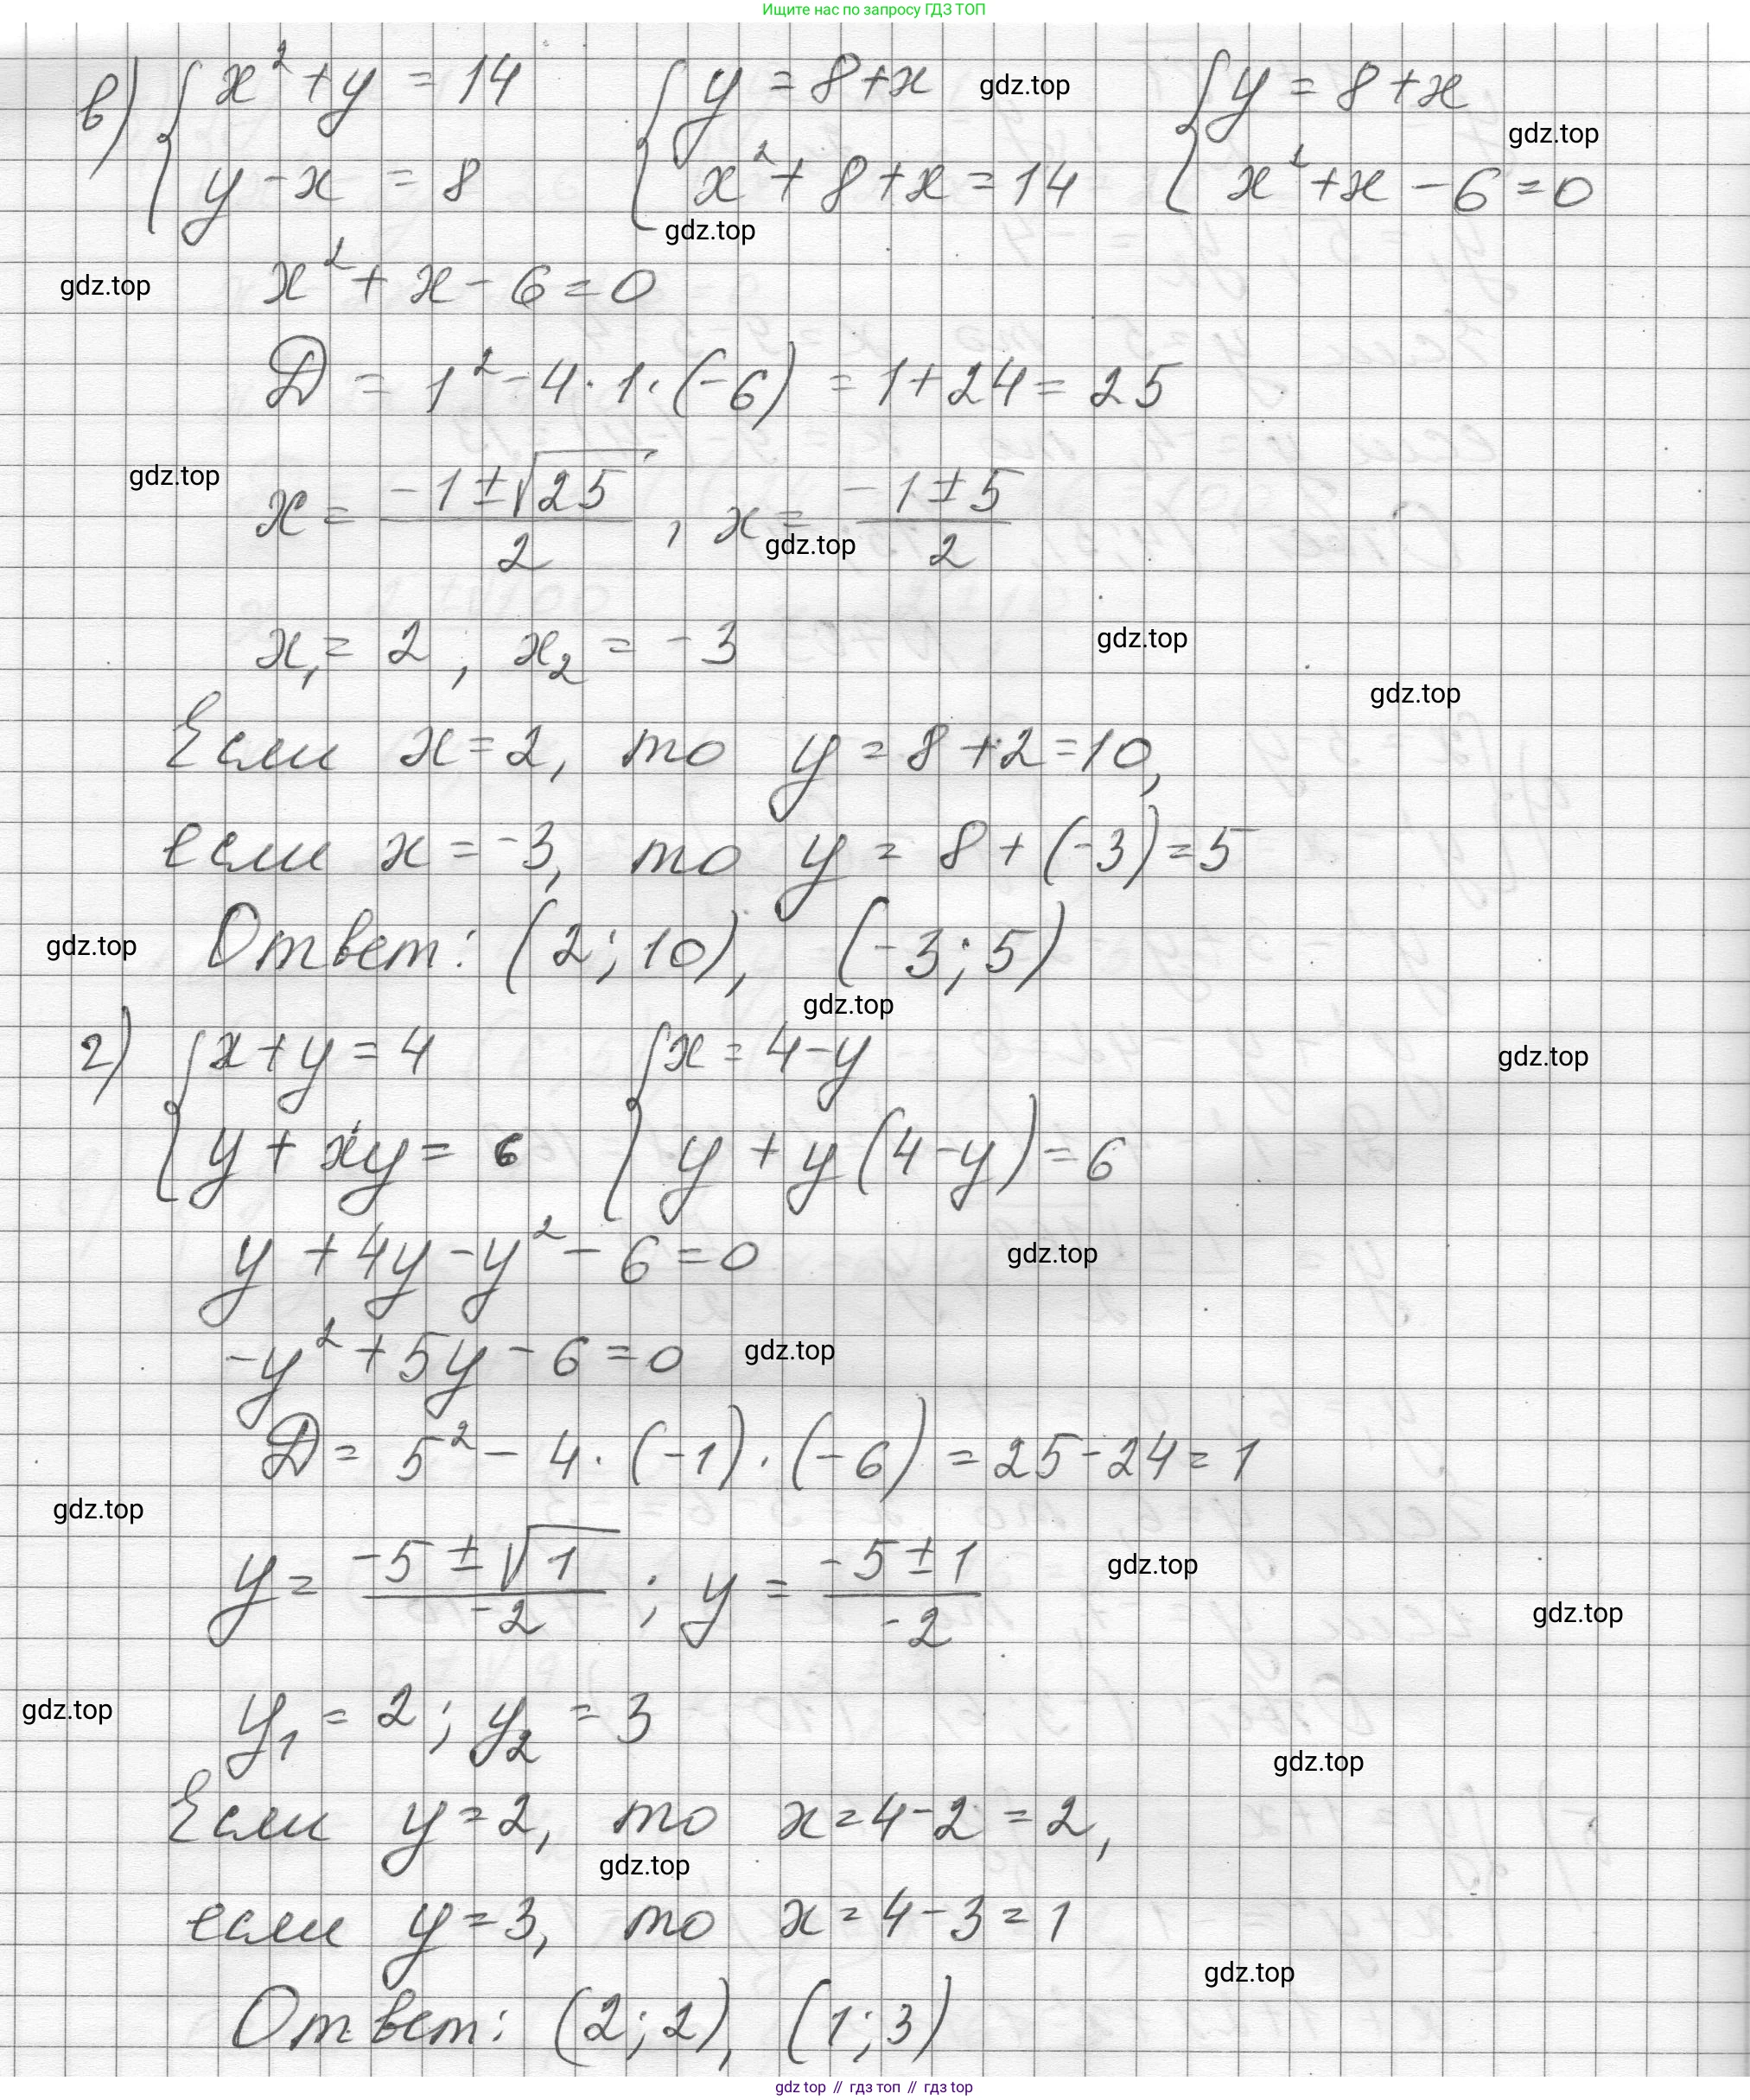 Ищите нас по запросу ГДЗ ТОП
в) { x² + y = 14 { y = 8 + x gdz.top { y = 8 + x
gdz.top
y - x = 8 x² + 8 + x = 14 x² + x - 6 = 0
gdz.top
gdz.top x² + x - 6 = 0
D = 1² - 4 · 1 · (-6) = 1 + 24 = 25
gdz.top
x = (-1 ± √25)/2 , x = (-1 ± 5)/2
gdz.top
x₁ = 2 , x₂ = -3 gdz.top
gdz.top
Если x = 2, то y = 8 + 2 = 10,
если x = -3, то y = 8 + (-3) = 5
gdz.top Ответ: (2; 10), (-3; 5)
gdz.top
г) { x + y = 4 { x = 4 - y gdz.top
y + xy = 6 y + y(4 - y) = 6
y + 4y - y² - 6 = 0 gdz.top
-y² + 5y - 6 = 0 gdz.top
D = 5² - 4 · (-1) · (-6) = 25 - 24 = 1
gdz.top
y = (-5 ± √1)/-2 ; y = (-5 ± 1)/-2 gdz.top
gdz.top
gdz.top y₁ = 2 ; y₂ = 3
gdz.top
Если y = 2, то x = 4 - 2 = 2,
gdz.top
если y = 3, то x = 4 - 3 = 1
gdz.top
Ответ: (2; 2), (1; 3)
gdz top // гдз топ // гдз top